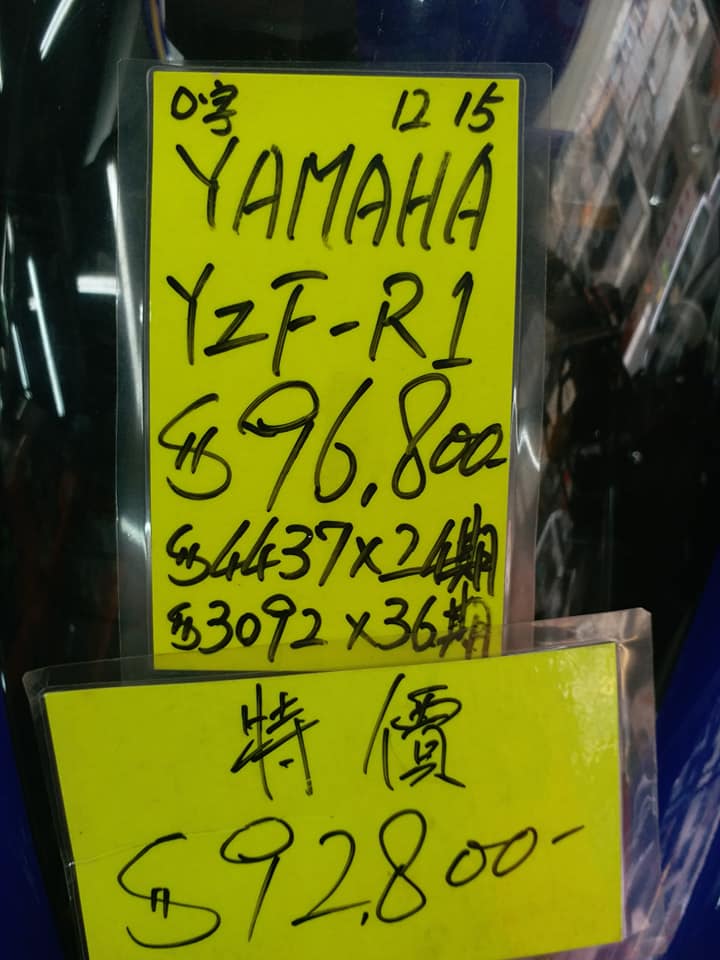 0字 12 15
YAMAHA
YZF-R1
$96,800-
$4437x24期
$3092x36期
特價
$92,800-